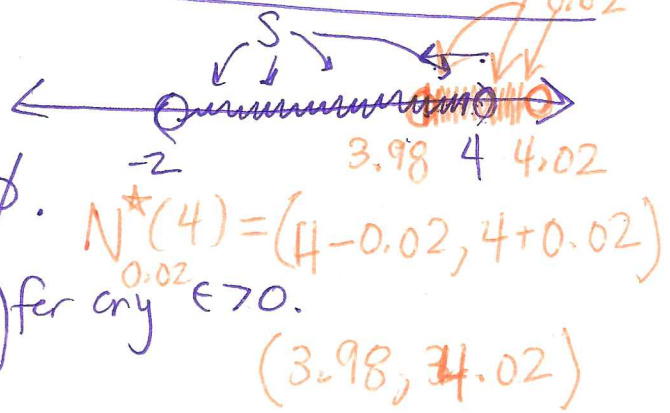 0.02
S
-2 3.98 4 4.02
∅.
N*0.02(4)=(4-0.02, 4+0.02)
) for any ϵ>0.
(3.98, 4.02)